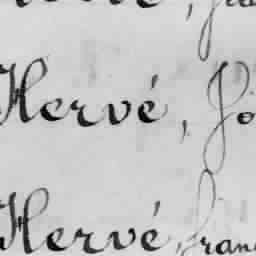 Hervé, Jo
Hervé, fran